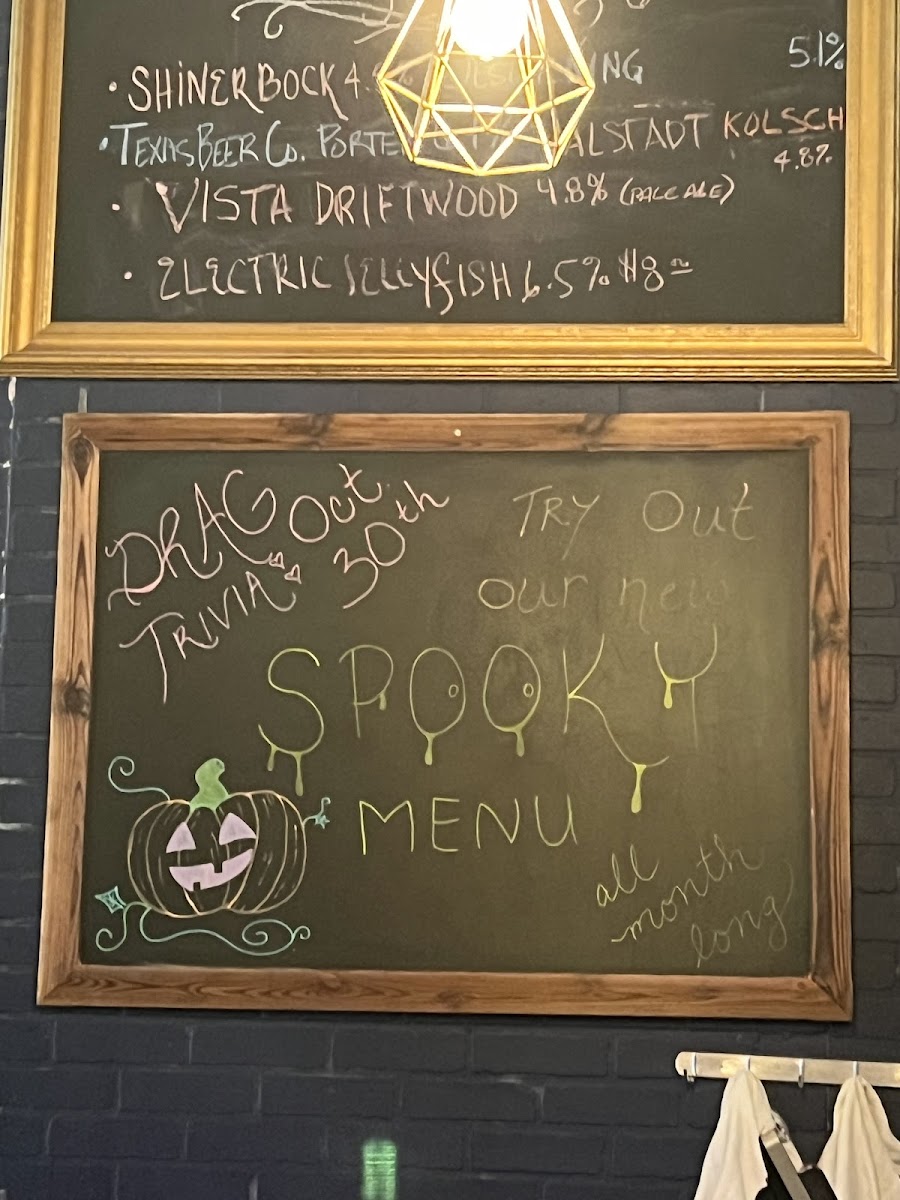 • SHINERBOCK 4. NG 5.1%
• TEXAS BEER CO. PORTE ALSTADT KOLSCH 4.8%
• VISTA DRIFTWOOD 4.8% (PALE ALE)
• ELECTRIC JELLYFISH 6.5% $8
DRAG
TRIVIA
Oct
30th
TRY Out
our new
SPOOKY
MENU
all
month
long